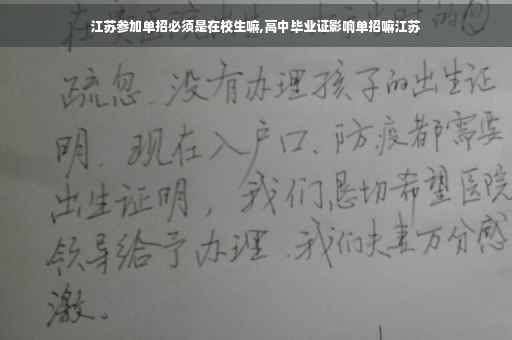 江苏参加单招必须是在校生嘛,高中毕业证影响单招嘛江苏
疏忽.没有办理孩子的出生证
明.现在入户口、防疫都需要
出生证明，我们恳切希望医院
领导给予办理.我们夫妻万分感
激。